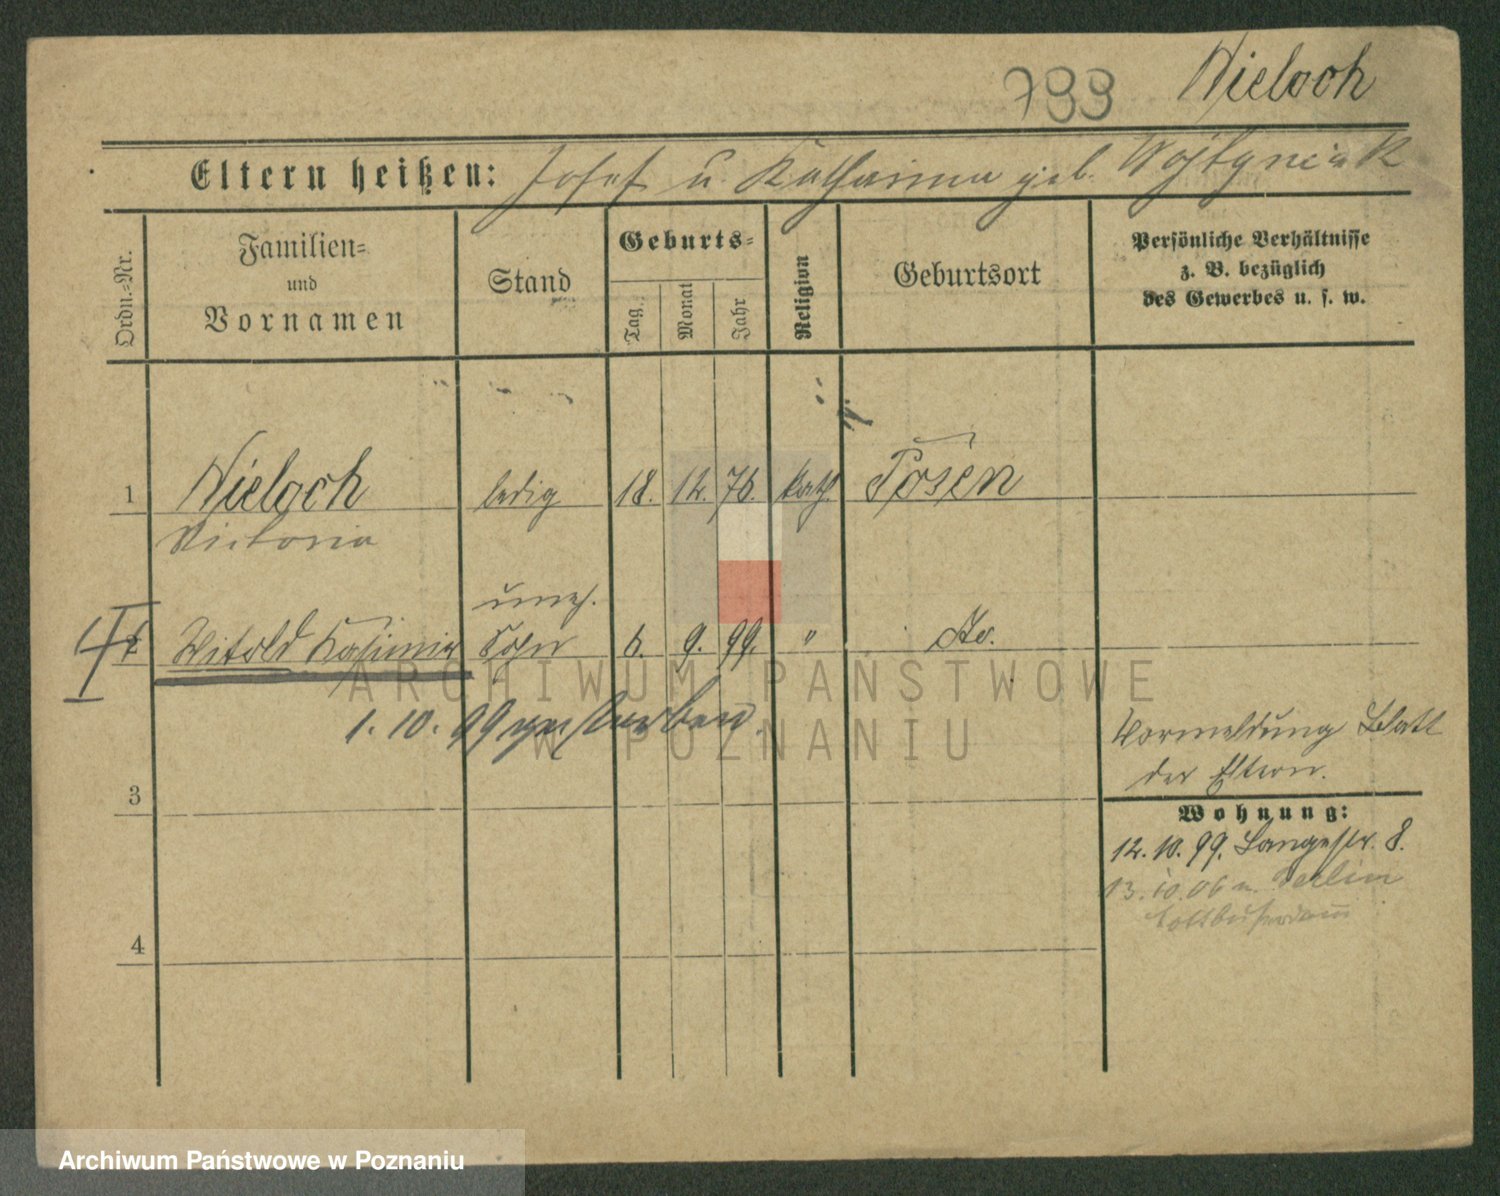 799 Nieloch
Eltern heißen: Josef u. Katharina geb. Wojtyniak
Ordn.-Nr.
Familien- und Vornamen
Stand
Geburts-
Tag
Monat
Jahr
Religion
Geburtsort
Persönliche Verhältnisse
z. B. bezüglich
des Gewerbes u. s. w.
1 Nieloch ledig 18. 12. 76. kath. Posen
Victoria
uneh.
2 Witold Kasimir Sohn 6. 9. 99. " do.
1. 10. 99 gestorben.
Vormeldung Blatt
der Eltern.
3
Wohnung:
12. 10. 99. Langestr. 8.
13. 10. 06 n. Berlin
Kottbuserdamm
4
ARCHIWUM PAŃSTWOWE
W POZNANIU
Archiwum Państwowe w Poznaniu